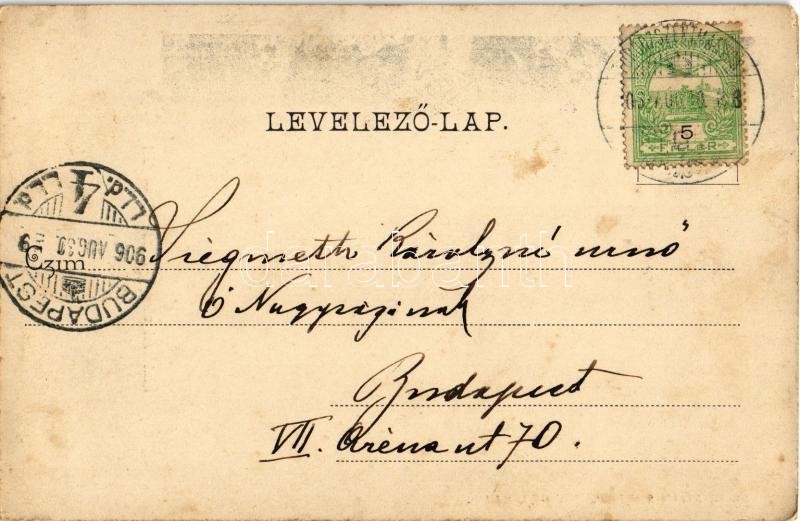 LEVELEZŐ-LAP.
5
FILLÉR
4
BUDAPEST
906 AUG 30.
Czim
Siegmeth Károlyné urnő
Ő Nagyságának
Budapest
VII. Aréna ut 70.
darabanth